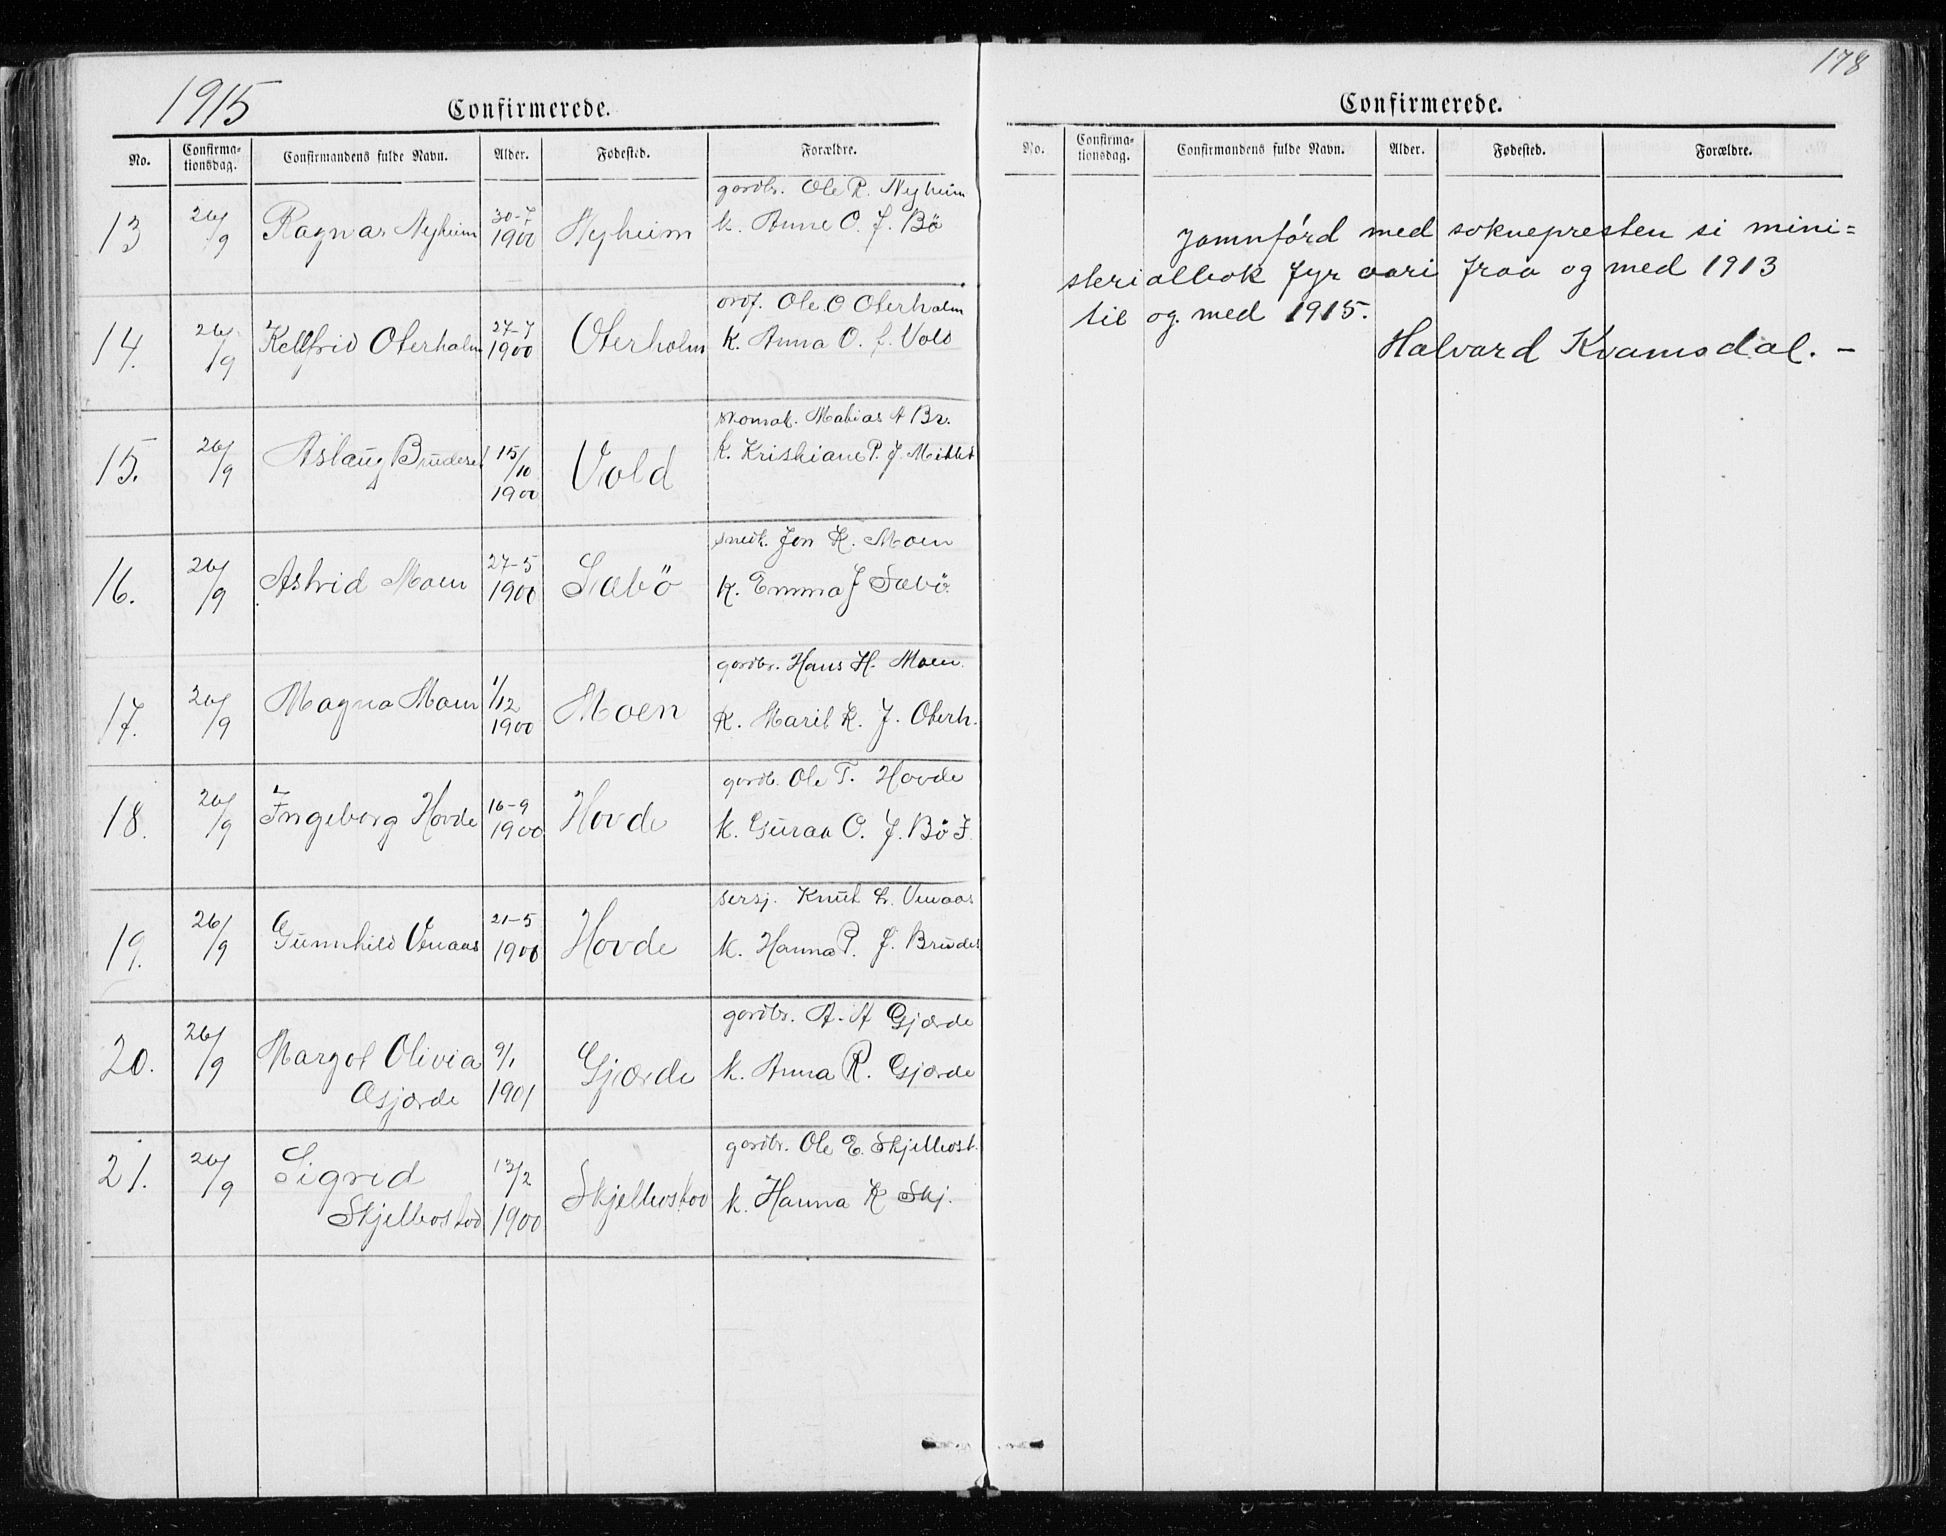 1915
Confirmerede.
No. Confirma-tionsdag. Confirmandens fulde Navn. Alder. Fødested. Forældre.
gardbr. Ole R. Nyheim
13 26/9 Ragnar Nyheim 30-7 1900 Nyheim k. Anne O. f. Bö
Ole O Oterholm
14. 26/9 Oterholm 27-7 1900 Oterholm k. Anna O. f. Vold
skomak. Matias A Br.
15. 26/9 Aslaug Bruderet 15/10 1900 Vold k. Kristiane P. f. Mittet
snedk. Jon K. Moen
16. 26/9 Astrid Moen 27-5 1900 Sæbö k. Emma f Sæbö.
gardbr. Hans H. Moen.
17. 26/9 Magna Moen 1/12 1900 Moen k. Marit K. f. Oterh.
gardb. Ole T. Hovde
18. 26/9 Ingeborg Hovde 16-9 1900 Hovde k. Guraa O. f. Bö I.
sersj. Knut L. Venaas
19. 26/9 Gunnhild Venaas 21-5 1900 Hovde k. Hanna P. f. Brudes
gardbr. A. A Gjærde
20. 26/9 Margot Olivia 9/1 1901 Gjærde k. Anna R. Gjærde
Gjærde
gardbr. Ole E. Skjelbost.
21. 26/9 Sigrid 13/2 1900 Skjelbostad k. Hanna K Skj.
Skjelbostad
178
Confirmerede.
No. Confirma-tionsdag. Confirmandens fulde Navn. Alder. Fødested. Forældre.
Jamnförd med soknepresten si mini=
sterialbok fyr aari fraa og med 1913
til og med 1915.
Halvard Kvamsdal. –